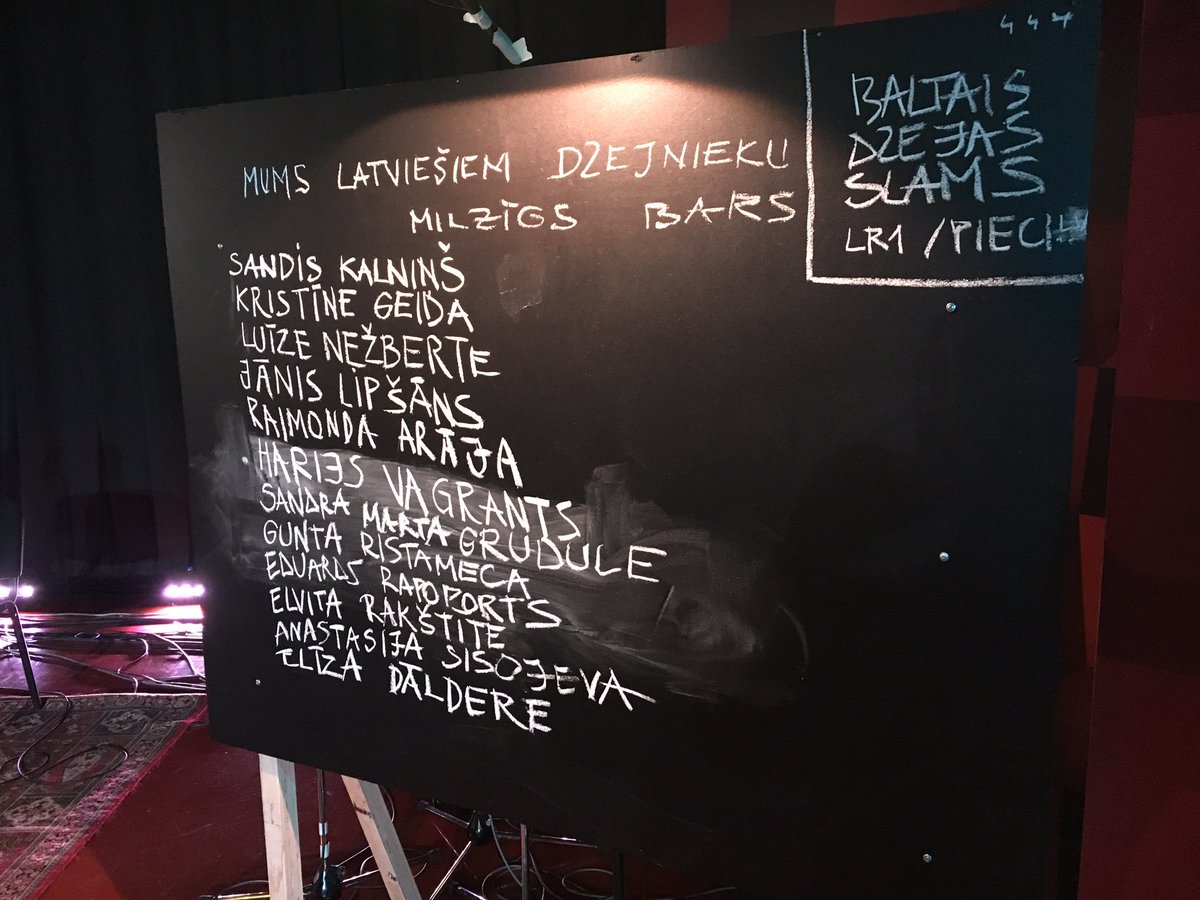 447
BALTAIS
DZEJAS
SLAMS
LR1 / PIECI
MUMS LATVIEŠIEM DZEJNIEKU
MILZĪGS BARS
SANDIS KALNIŅŠ
KRISTĪNE GEIDA
LUĪZE NEŽBERTE
JĀNIS LIPŠĀNS
RAIMONDA ARĀJA
HARIJS VAGRANTS
SANDRA MARTA GRUDULE
GUNTA RISTAMECA
EDUARDS RAPOPORTS
ELVITA RAKŠTITE
ANASTASIJA SISOJEVA
ELĪZA DĀLDERE